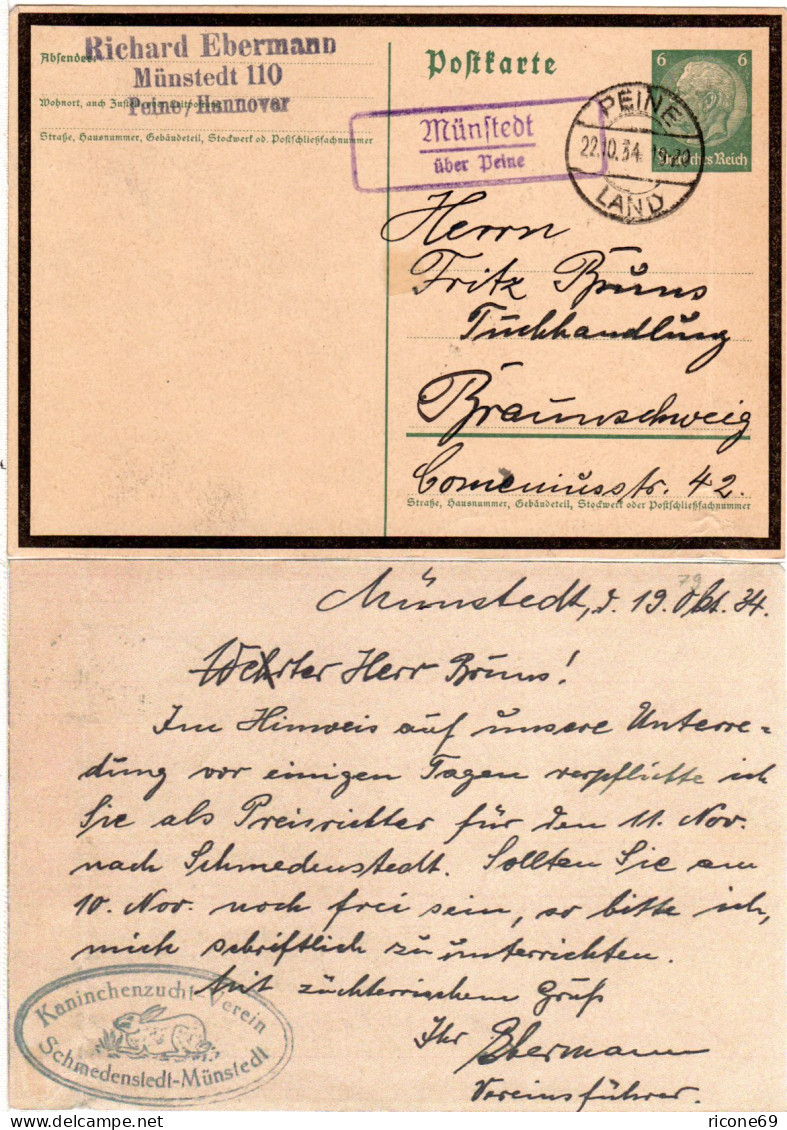 Richard Ebermann
Absender:
Münstedt 110
Wohnort, auch Zustell- oder Leitpostamt
Peine/Hannover
Straße, Hausnummer, Gebäudeteil, Stockwerk od. Postschließfachnummer
Postkarte
6 6
Deutsches Reich
PEINE
22.10.34
LAND
Münstedt
über Peine
Herrn
Fritz Bruns
Tuchhandlung
Braunschweig
Comeniusstr. 42.
Straße, Hausnummer, Gebäudeteil, Stockwerk oder Postschließfachnummer
79
Münstedt, d. 19. Okt. 34.
Werter Herr Bruns!
Im Hinweis auf unsere Unterre-
dung vor einigen Tagen verpflichte ich
Sie als Preisrichter für den 11. Nov.
nach Schmedenstedt. Sollten Sie am
10. Nov. noch frei sein, so bitte ich,
mich schriftlich zu unterrichten.
Mit züchterischem Gruß
Ihr Ebermann
Vereinsführer.
Kaninchenzucht-Verein
Schmedenstedt-Münstedt
ricone69